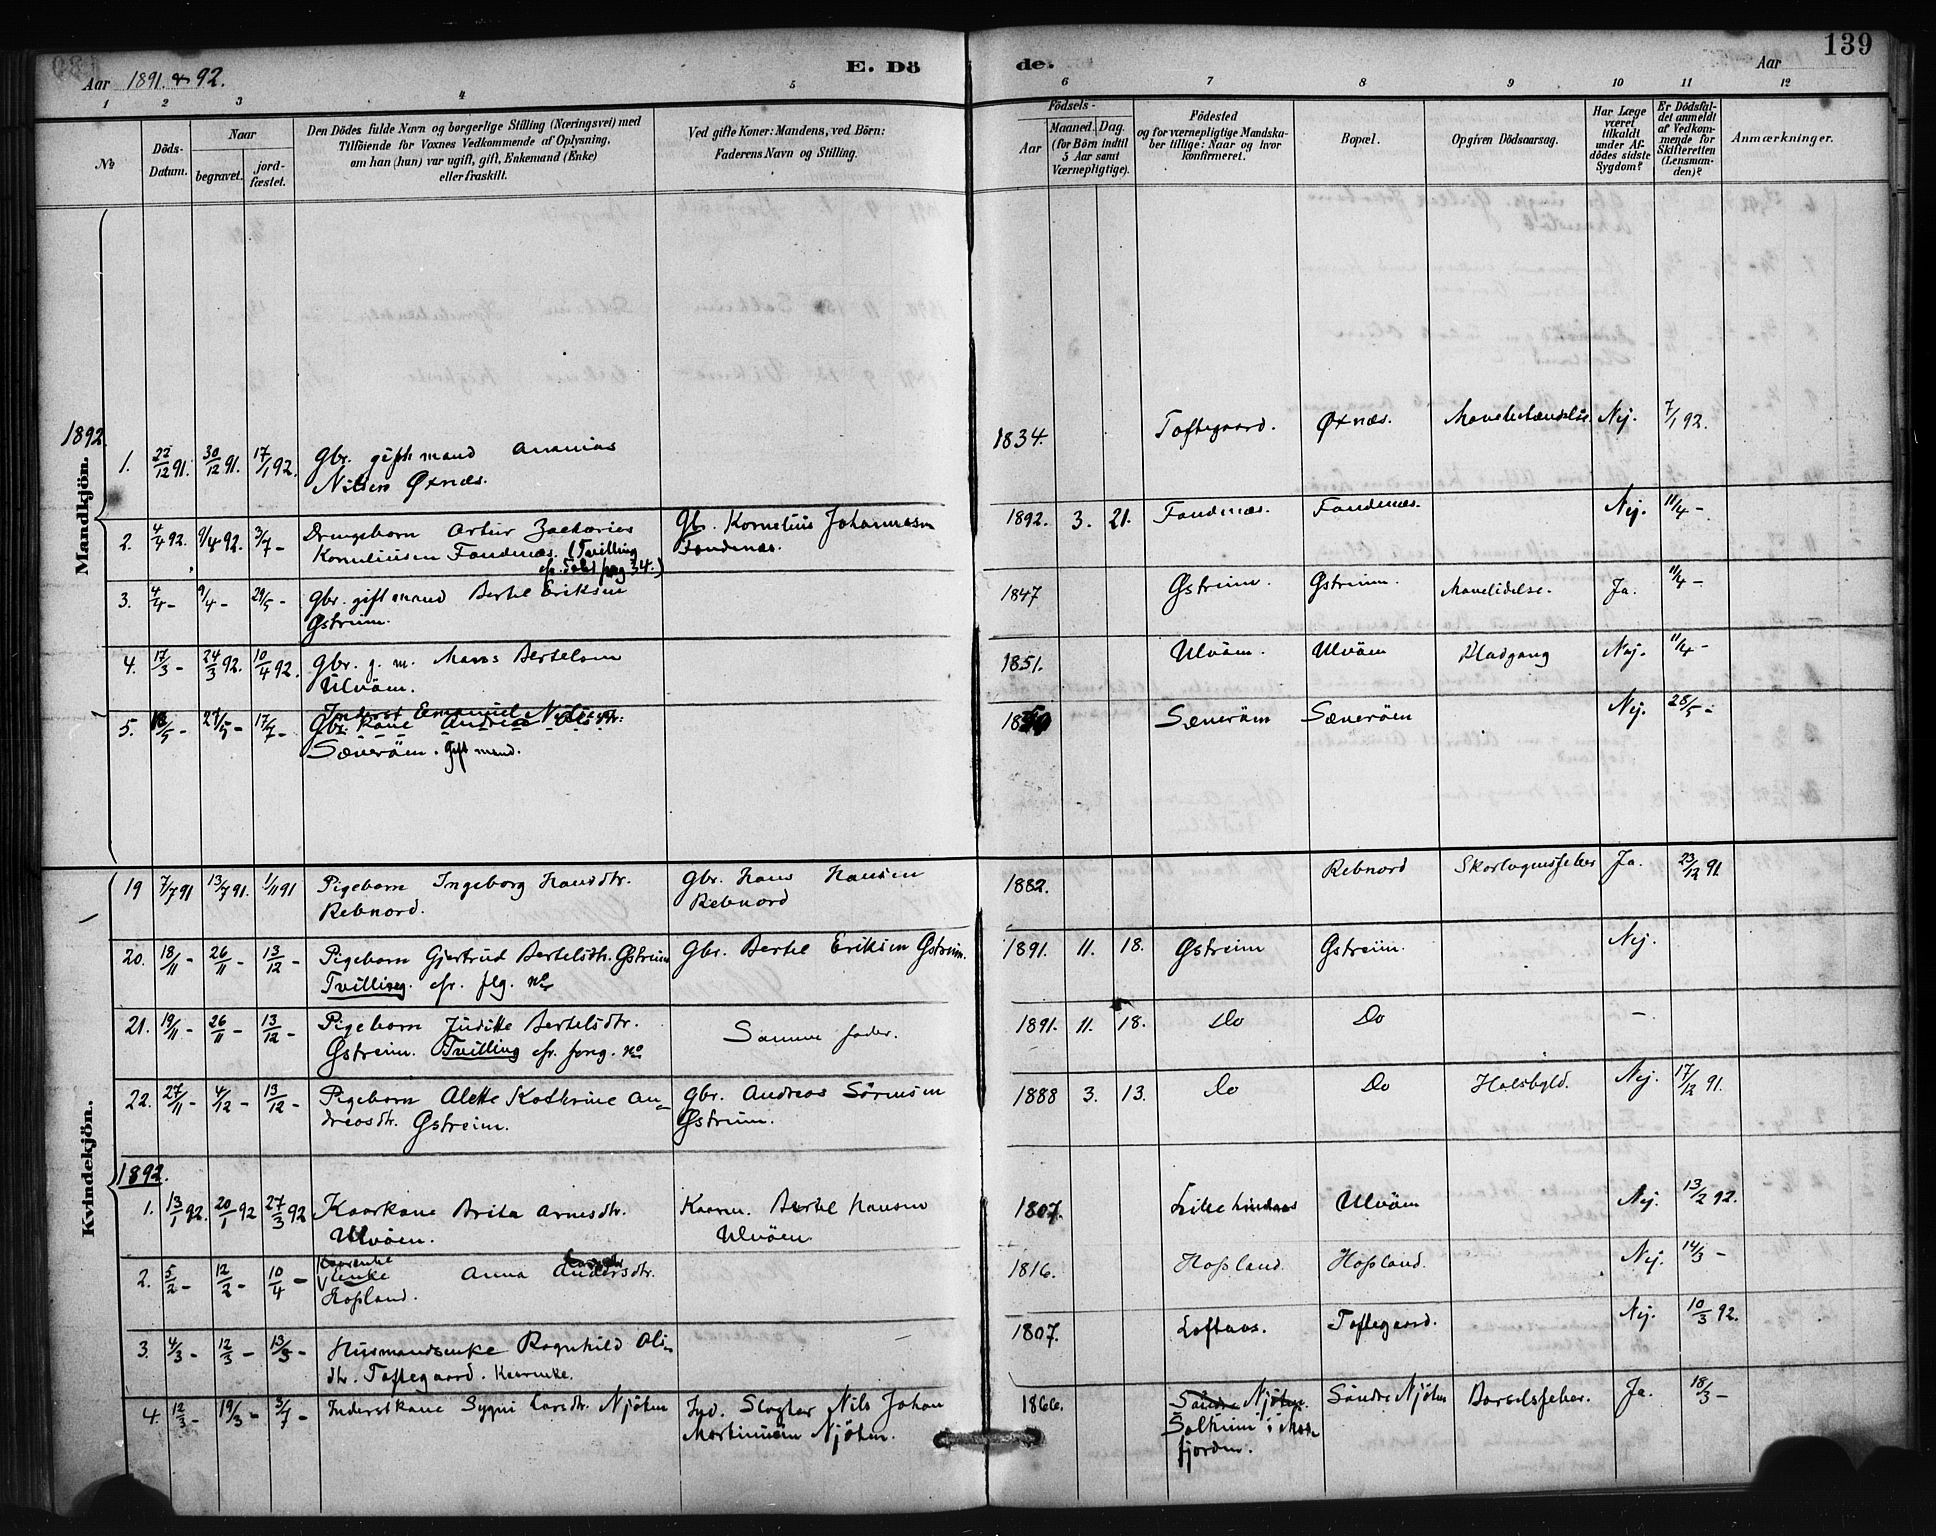 139
Aar 1891 & 92.
E. Döde.
Aar
1 2 3 4 5 6 7 8 9 10 11 12
No
Döds-Datum.
Naar
begravet.
jord-fæstet.
Den Dödes fulde Navn og borgerlige Stilling (Næringsvei) med
Tilföiende for Voxnes Vedkommende af Oplysning,
om han (hun) var ugift, gift, Enkemand (Enke)
eller fraskilt.
Ved gifte Koner: Mandens, ved Börn:
Faderens Navn og Stilling.
Födsels-
Aar
Maaned. Dag.
(for Börn indtil
5 Aar samt
Værnepligtige).
Födested
og for værnepligtige Mandska-
ber tillige: Naar og hvor
konfirmeret.
Bopæl.
Opgiven Dödsaarsag.
Har Læge
været
tilkaldt
under Af-
dödes sidste
Sygdom?
Er Dödsfal-
det anmeldt
af Vedkom-
mende for
Skifteretten
(Lensman-
den)?
Anmærkninger.
Mandkjön.
1892
1. 22/12 91. 30/12 91. 17/1 92. Gbr. gift mand Ananias 1834. Toftegaard. Øxnæs. Mavebetændelse. Nej. 7/1 92.
Nilsen Øxnæs.
2. 4/4 92. 9/4 92. 3/7 - Drengebarn Artur Zacharias Gbr. Kornelius Johannesen 1892. 3. 21. Fondenæs. Fondenæs. Nej. 11/4 -
Korneliusen Fondenæs. (Tvilling Fondenæs.
cfr. Fol. pag 34.)
3. 4/4 - 9/4 - 29/5 - Gbr. gift mand Bertel Eriksen 1847 Østreim. Østreim. Mavelidelse. Ja. 11/4 -
Østreim.
4. 17/3 - 24/3 92. 10/4 92. Gbr. g. m. Mons Bertelsen 1851. Ulvöen. Ulvöen Blodgang Nej. 11/4 -
Ulvöen.
5. 18/5 - 24/5 - 17/7 - Inderst Emanuel Nilsen Sæveröen Sæveröen Nej. 28/5 -
Gbr. kone Andrea
Sæveröen. Gift mand.
Kvindekjön.
19 7/7 91 13/7 91. 1/11 91 Pigebarn Ingeborg Hansdtr. Gbr. Hans Hansen 1882. Rebnord Skarlagensfeber Ja. 23/12 91
Rebnord. Rebnord
20. 18/11 - 26/11 - 13/12 - Pigebarn Gjertrud Bertelsdtr. Østreim Gbr. Bertel Eriksen Østreim. 1891. 11. 18. Østreim Østreim. Nej.
Tvilling. cfr. flg. No
21. 19/11 - 26/11 - 13/12 - Pigebarn Juditte Bertelsdtr. Samme fader. 1891. 11. 18. Do Do -
Østreim. Tvilling cfr. forg. No
22. 27/11 - 4/12 - 13/12 - Pigebarn Alette Kathrine An- Gbr. Andreas Sörensen 1888 3. 13. Do Do Halsbyld. Nej. 17/12 91.
dreasdtr. Østreim. Østreim.
1892.
1. 13/1 92. 20/1 92 27/3 92 Kaarkone Brita Arnesdtr. Kaarm. Bertel Hansen 1807. Lille Lindaas Ulvöen Nej. 13/2 92.
Ulvöen. Ulvöen.
2. 5/2 - 12/2 - 10/4 - Kaarenke
Enke Anna Andersdtr. 1816. Hopland. Hopland. Nej. 14/3 -
Hopland.
3. 4/3 - 12/3 - 13/3 - Husmandsenke Ragnhild Ols- - 1807. Loftaas. Toftegaard. Nej. 10/3 92.
dtr. Toftegaard. Kaarenke.
4. 12/3 - 19/3 - 3/7 - Inderstkone Sygni Larsdtr. Njöten Ind. Slagter Nils Johan 1866. Söndre Njöten. Söndre Njöten Barselsfeber. Ja. 18/3 -
Martinusen Njöten. Solheim i Mas-
fjorden.